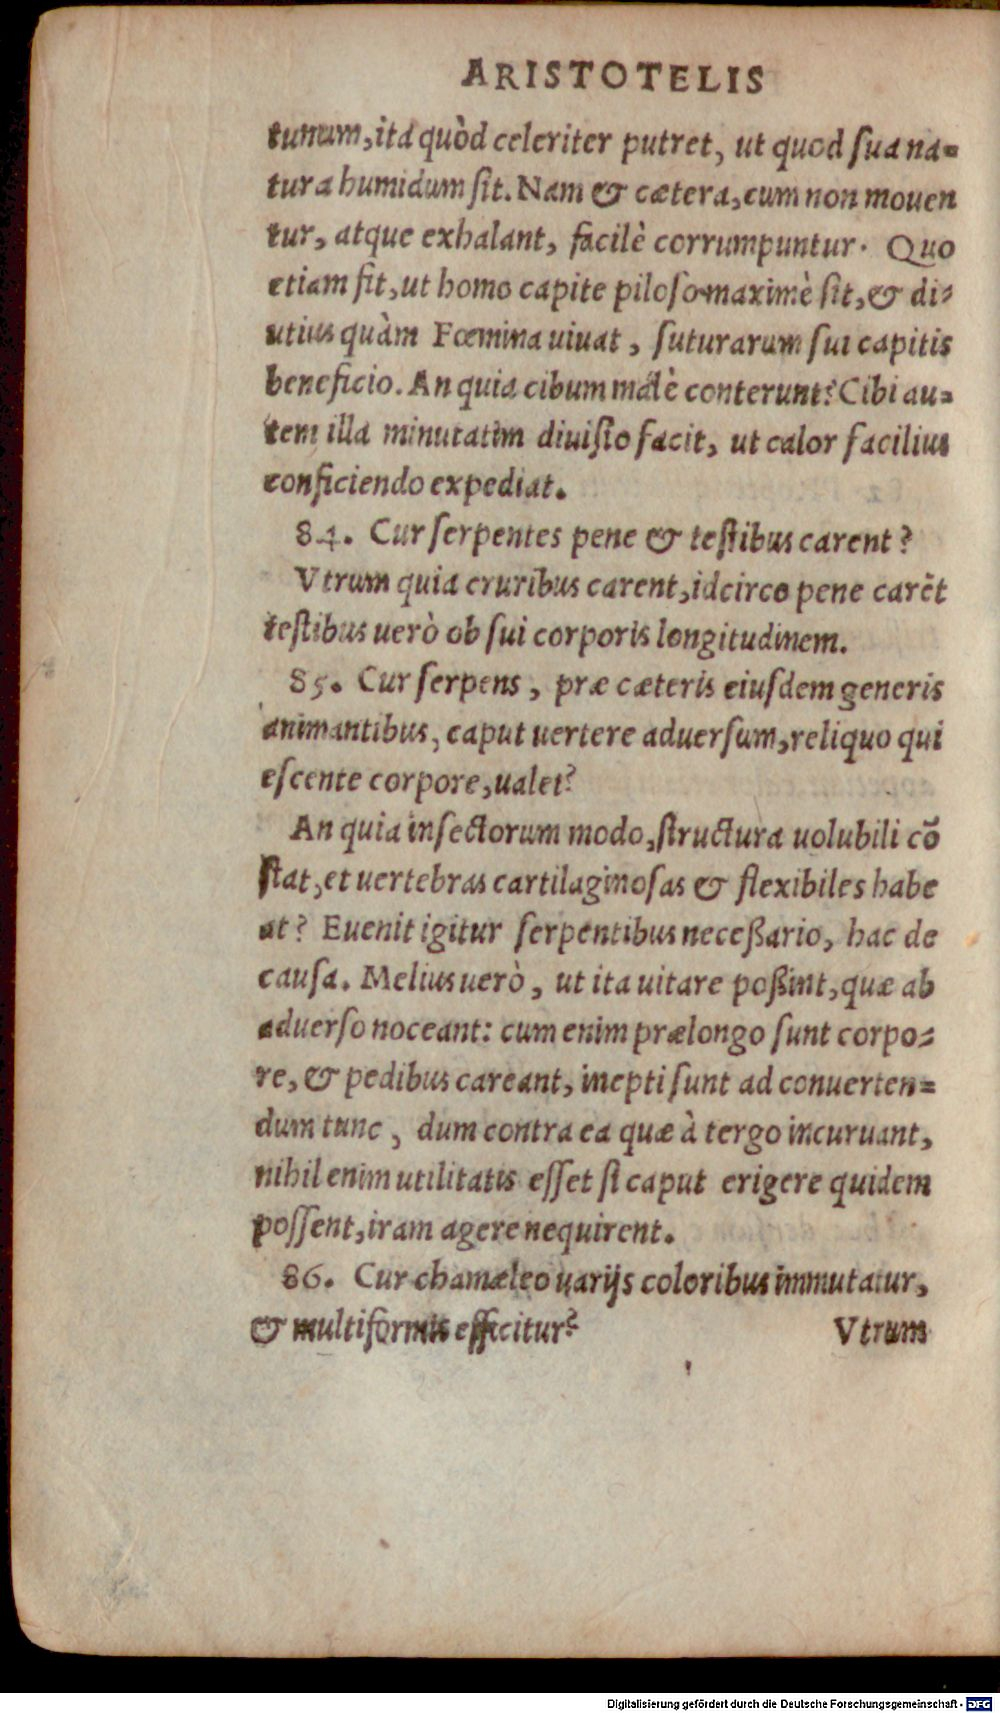 ARISTOTELIS
tunum, ita quòd celeriter putret, ut quod sua na=
tura humidum sit. Nam & cætera, cum non mouen
tur, atque exhalant, facilè corrumpuntur. Quo
etiam fit, ut homo capite piloso maximè sit, & di=
utius quàm Fœmina uiuat, suturarum sui capitis
beneficio. An quia cibum malè conterunt? Cibi au=
tem illa minutatim diuisio facit, ut calor facilius
conficiendo expediat.
84. Cur serpentes pene & testibus carent?
Vtrum quia cruribus carent, idcirco pene carẽt
testibus uerò ob sui corporis longitudinem.
85. Cur serpens, præ cæteris eiusdem generis
animantibus, caput uertere aduersum, reliquo qui
escente corpore, ualet?
An quia insectorum modo, structura uolubili cõ
stat, et uertebras cartilaginosas & flexibiles habe
at? Euenit igitur serpentibus neceßario, hac de
causa. Melius uerò, ut ita uitare poßint, quæ ab
aduerso noceant: cum enim prælongo sunt corpo=
re, & pedibus careant, inepti sunt ad conuerten=
dum tunc, dum contra ea quæ à tergo incuruant,
nihil enim utilitatis esset si caput erigere quidem
possent, iram agere nequirent.
86. Cur chamæleo uarijs coloribus immutatur,
& multiformis efficitur? Vtrum
Digitalisierung gefördert durch die Deutsche Forschungsgemeinschaft - DFG